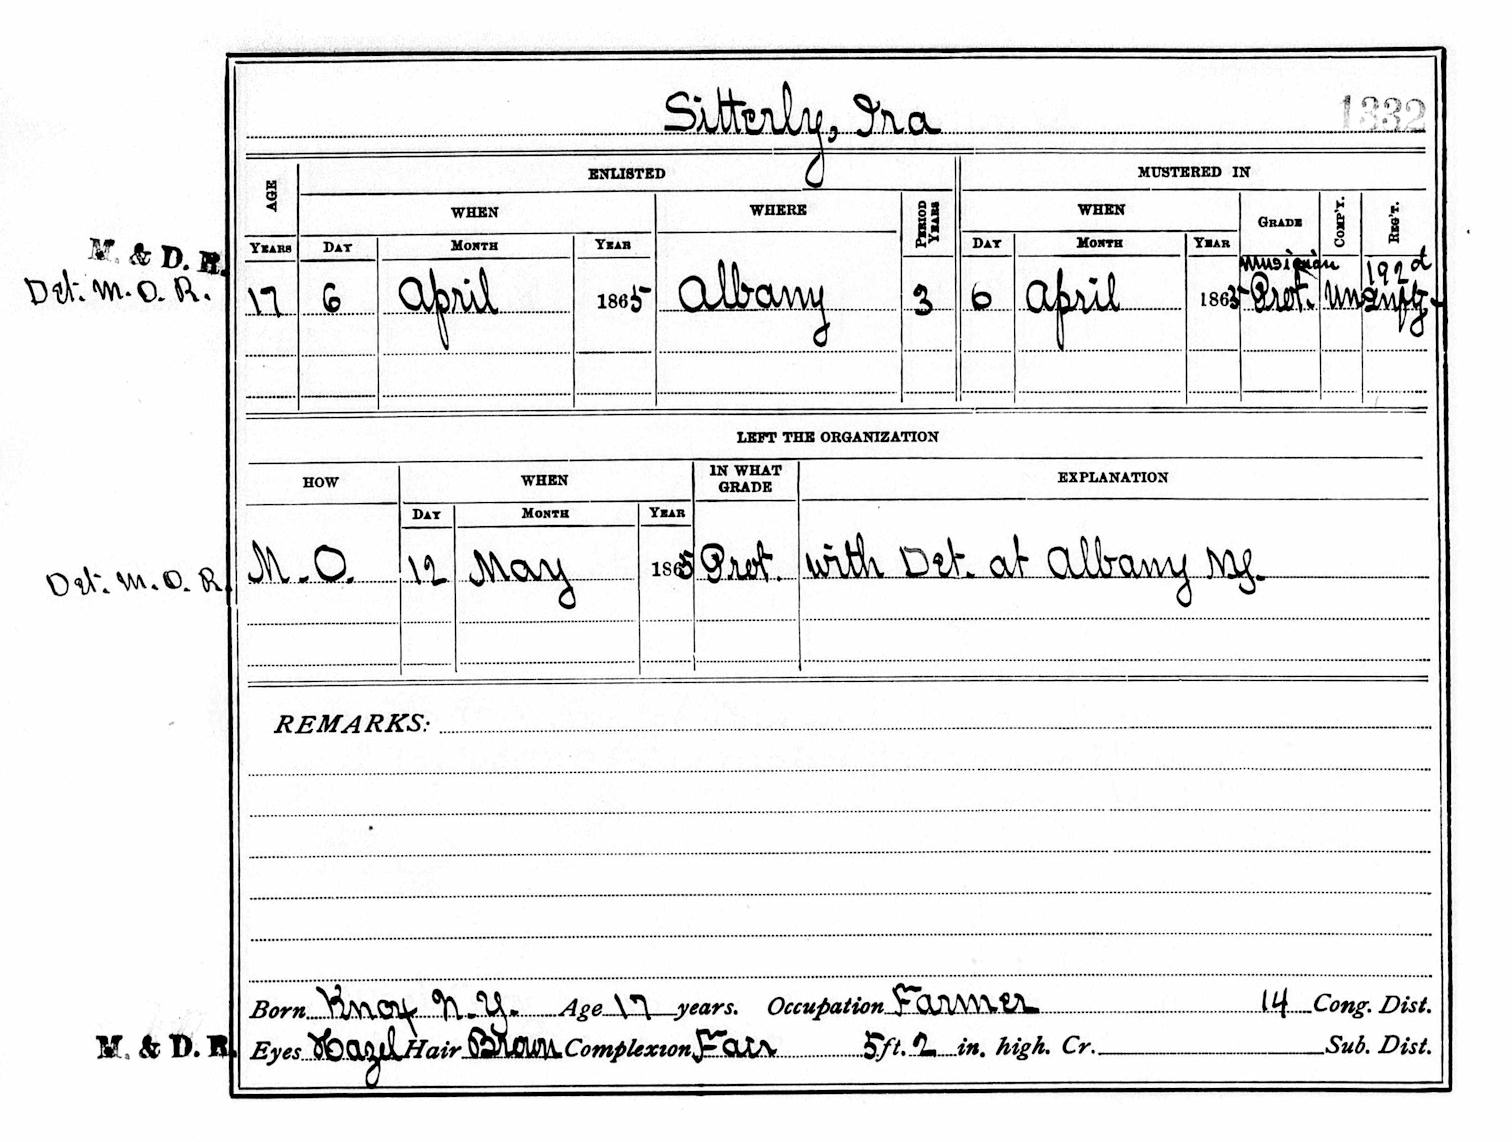 Sitterly, Ira 1332
AGE ENLISTED MUSTERED IN
WHEN WHERE PERIOD YEARS WHEN GRADE COMP'Y. REG'T.
YEARS DAY MONTH YEAR DAY MONTH YEAR
M. & D. R. Musician 192d
Det. M. O. R. 17 6 April 1865 Albany 3 6 April 1865 Prvt. Un Infty
LEFT THE ORGANIZATION
HOW WHEN IN WHAT GRADE EXPLANATION
DAY MONTH YEAR
Det. M. O. R. M. O. 12 May 1865 Prvt. with Det. at Albany NY.
REMARKS:
Born Knox N. Y. Age 17 years. Occupation Farmer 14 Cong. Dist.
M. & D. R. Eyes Hazel Hair Brown Complexion Fair 5 ft. 2 in. high. Cr. Sub. Dist.